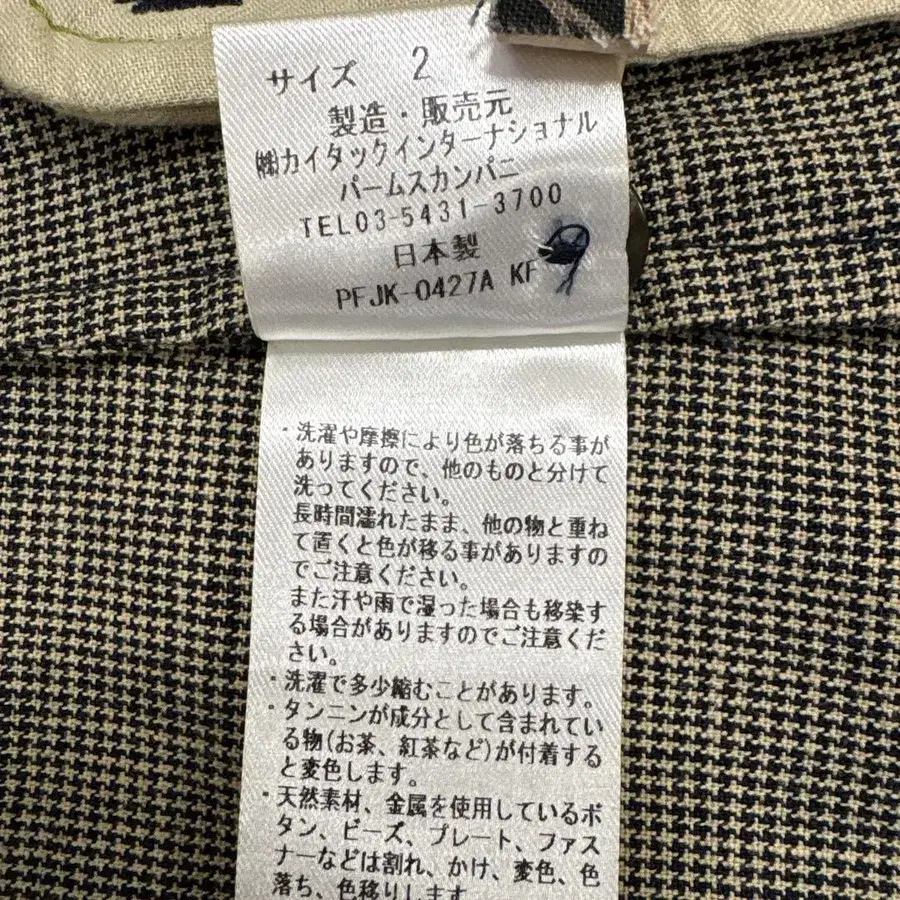 サイズ 2
製造・販売元
㈱カイタックインターナショナル
パームスカンパニ
TEL03-5431-3700
日本製
PFJK-0427A KF
・洗濯や摩擦により色が落ちる事が
ありますので、他のものと分けて
洗ってください。
長時間濡れたまま、他の物と重ね
て置くと色が移る事がありますの
でご注意ください。
また汗や雨で湿った場合も移染す
る場合がありますのでご注意くだ
さい。
・洗濯で多少縮むことがあります。
・タンニンが成分として含まれてい
る物(お茶、紅茶など)が付着する
と変色します。
・天然素材、金属を使用しているボ
タン、ビーズ、プレート、ファス
ナーなどは割れ、かけ、変色、色
落ち、色移りします